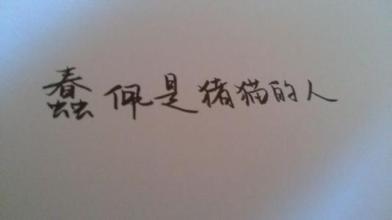 蠢佩是猪猫的人